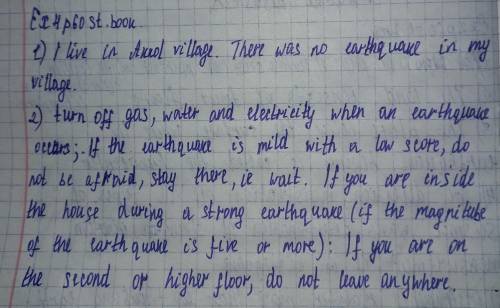 Ex 4 p60 st. book.
1) I live in Axeol village. There was no earthquake in my
village.
2) turn off gas, water and electricity when an earthquake
occurs;. If the earthquake is mild with a low score, do
not be afraid, stay there, ie wait. If you are inside
the house during a strong earthquake (if the magnitube
of the earthquake is five or more): If you are on
the second or higher floor, do not leave anywhere.